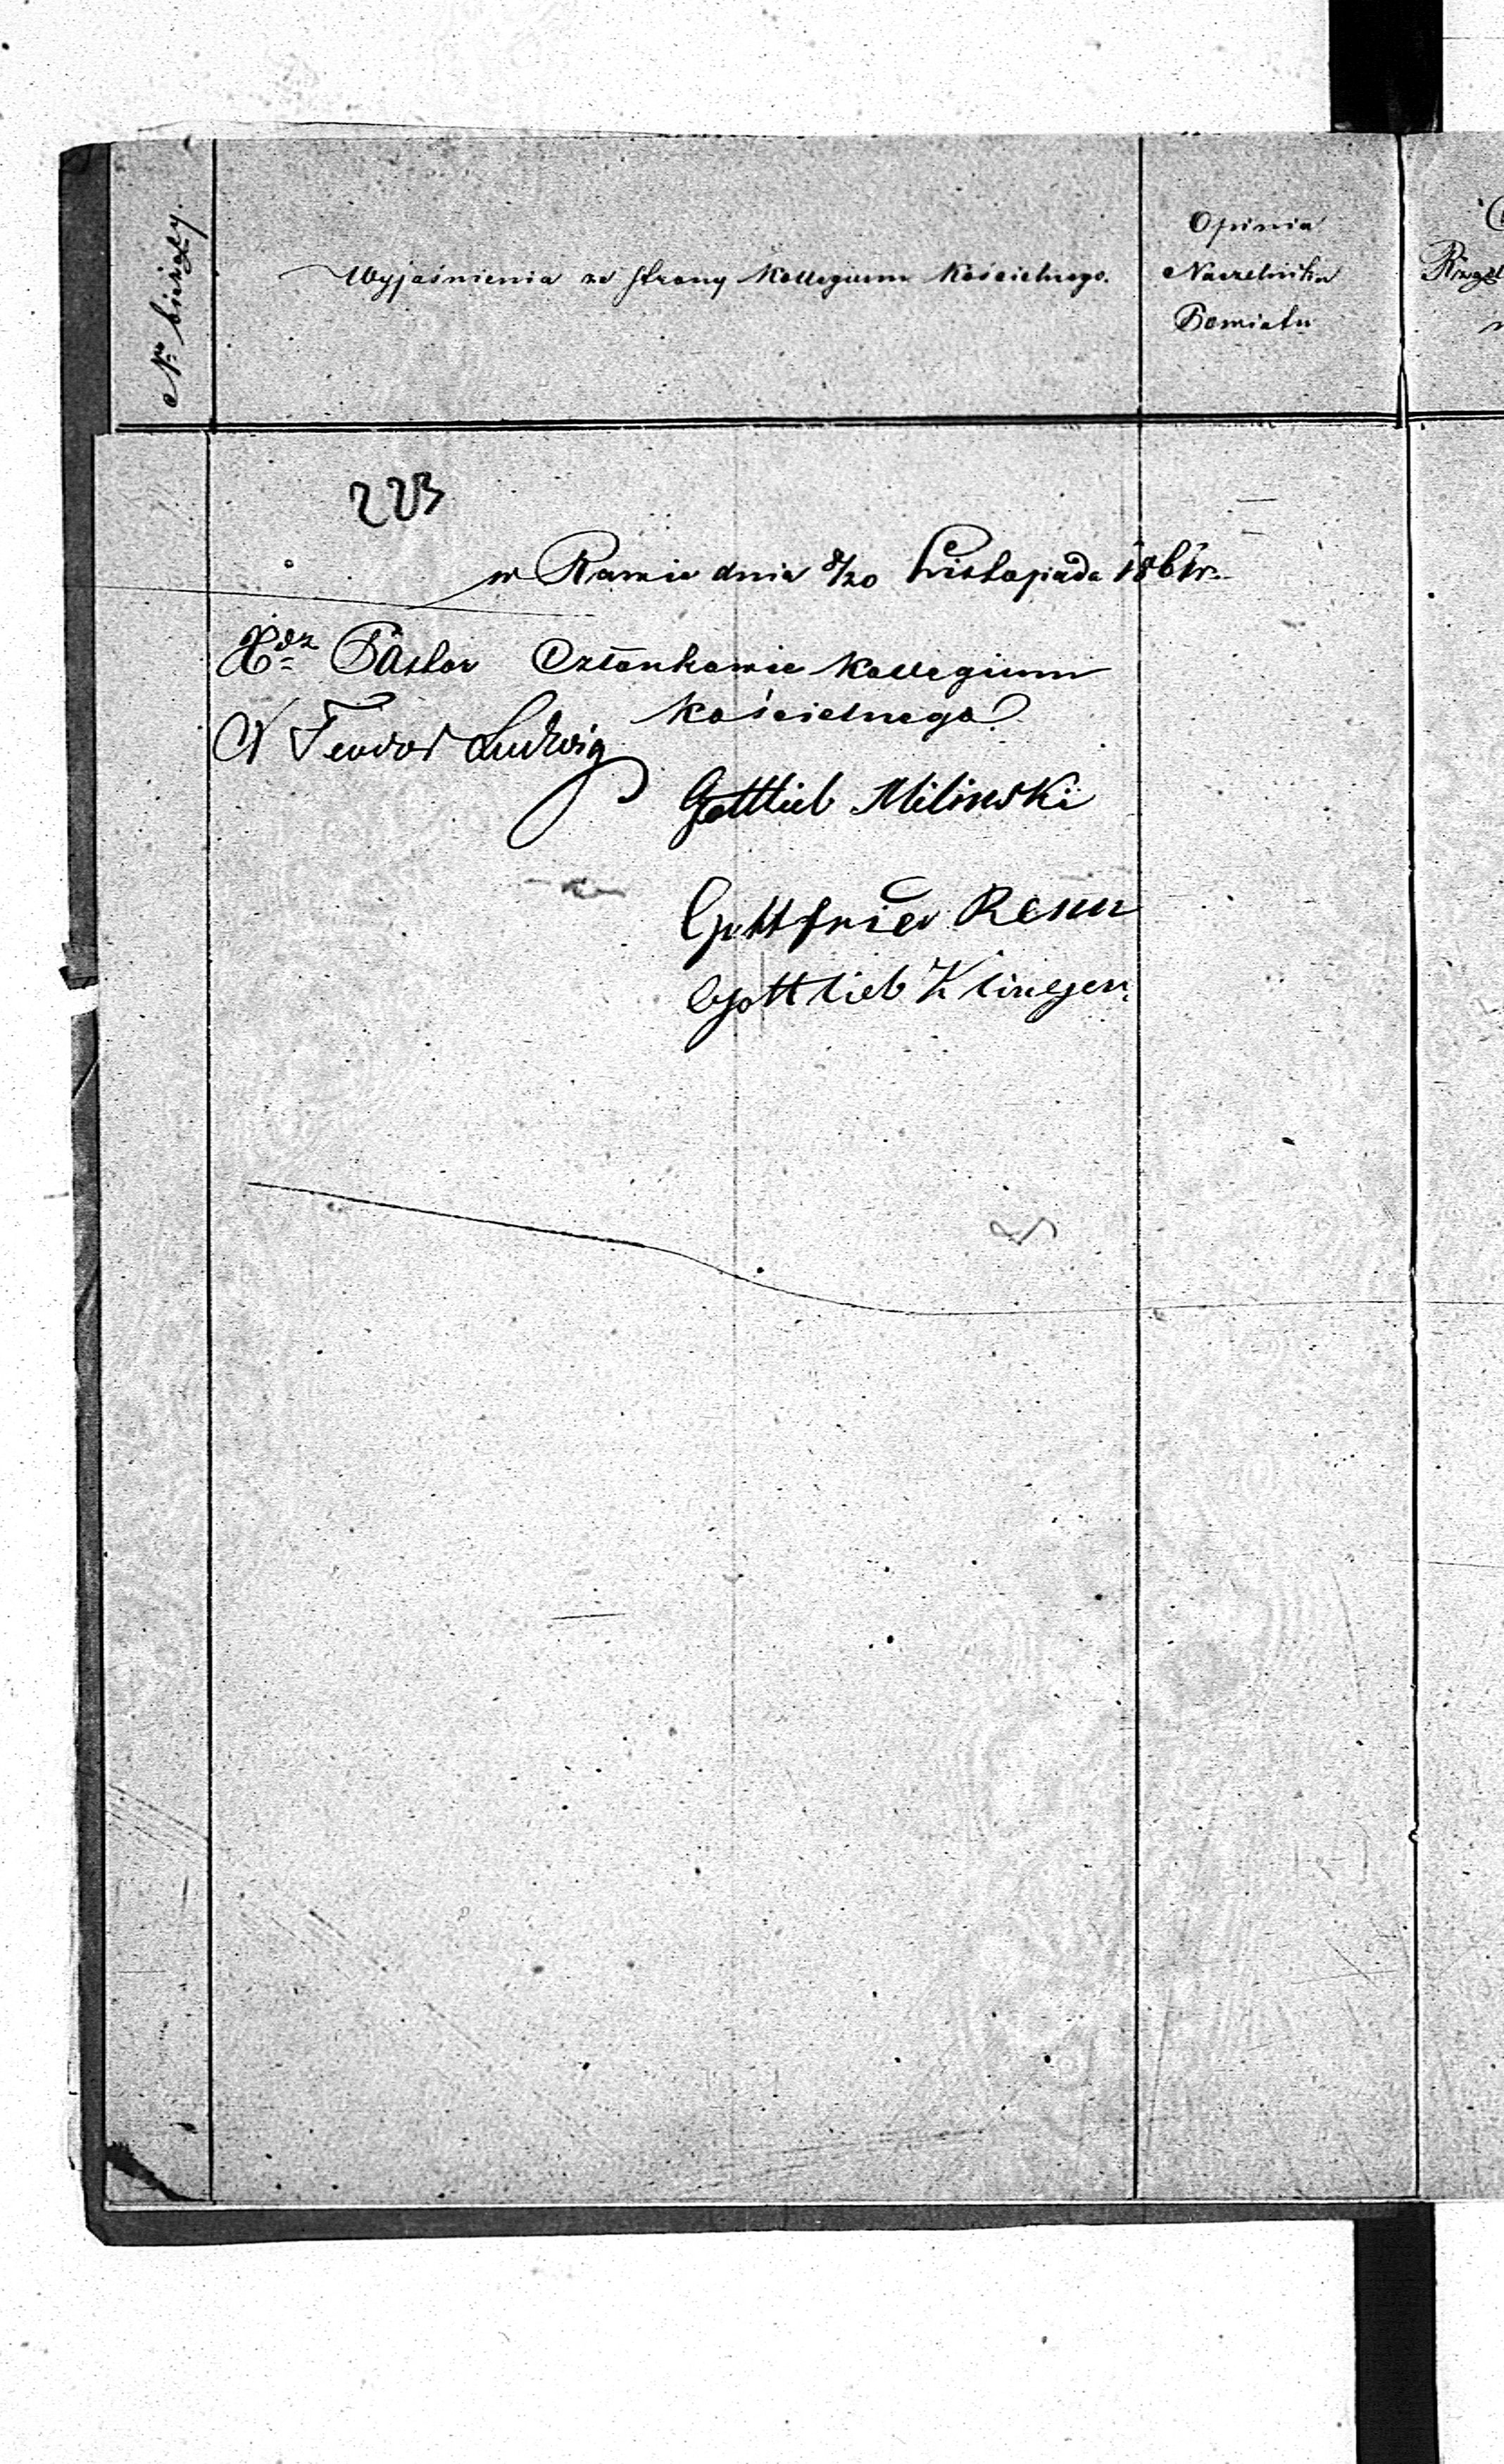 No bieżący.
Wyjaśnienia ze strony Kollegium Kościelnego.
Opinia
Naczelnika
Powiatu
223
w Rawie dnia 8/20 Listopada 1861r.
Xdz Pastor Członkowie Kollegium
Kościelnego
X Teodor Ludwig
Gottlieb Milinski
Gottfried Renn
Gottlieb Klingen